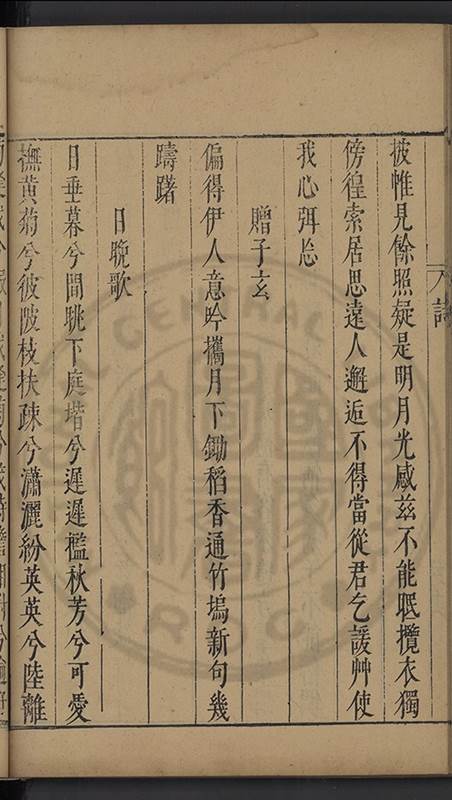 披帷見餘照疑是明月光感茲不能眠攬衣獨
傍徨索居思遠人邂逅不得當從君乞諼艸使
我心弭忘
贈子玄
偏得伊人意吟攜月下鋤稻香通竹塢新句幾
躊躇
日晩歌
日垂暮兮間眺下庭堦兮遲遲檻秋芳兮可愛
撫黄菊兮彼陂枝扶疎兮瀟灑紛英英兮陸離